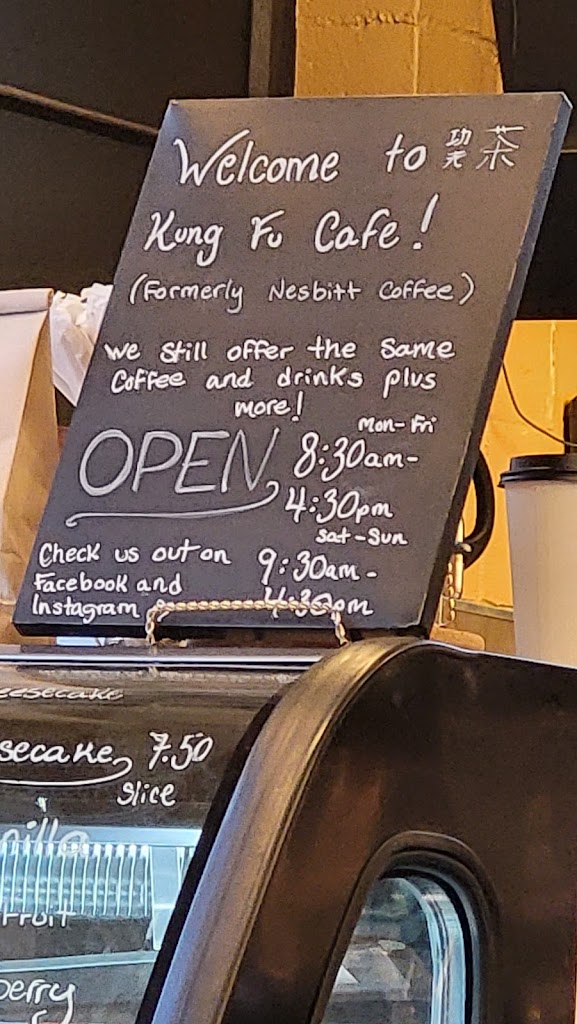 Welcome to 功夫 茶
Kung Fu Cafe!
(Formerly Nesbitt Coffee)
We still offer the same
coffee and drinks plus
more!
OPEN
Mon-Fri
8:30am-
4:30pm
Sat-Sun
9:30am-
4:30pm
Check us out on
Facebook and
Instagram
eesecake
secake 7.50
slice
nilla
Fruit
berry